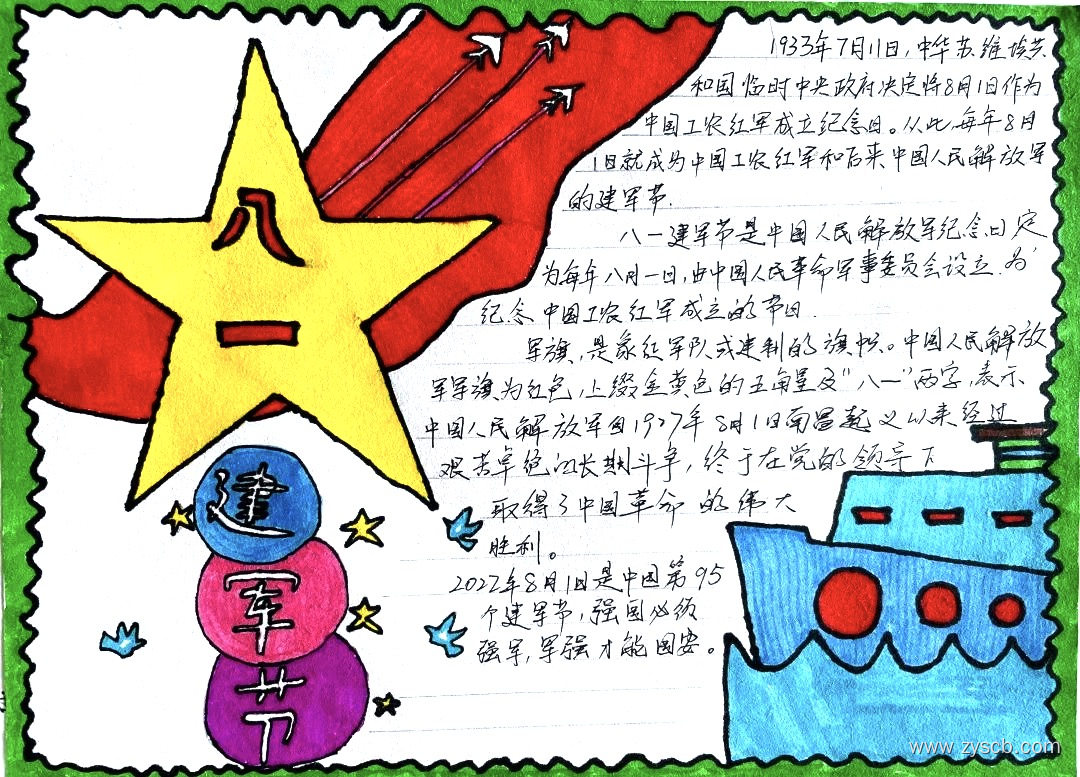 八
一
建
军
节
1933年7月11日,中华苏维埃共
和国临时中央政府决定将8月1日作为
中国工农红军成立纪念日。从此,每年8月
1日就成为中国工农红军和后来中国人民解放军
的建军节.
八一建军节是中国人民解放军纪念日,定
为每年八月一日,由中国人民革命军事委员会设立.为
纪念中国工农红军成立的节日.
军旗,是象征军队或建制的旗帜。中国人民解放
军军旗为红色,上缀金黄色的五角星及"八一"两字,表示
中国人民解放军自1927年8月1日南昌起义以来经过
艰苦卓绝的长期斗争,终于在党的领导下
取得了中国革命的伟大
胜利。
2022年8月1日是中国第95
个建军节,强国必须
强军,军强才能国安。
www.zyscb.com